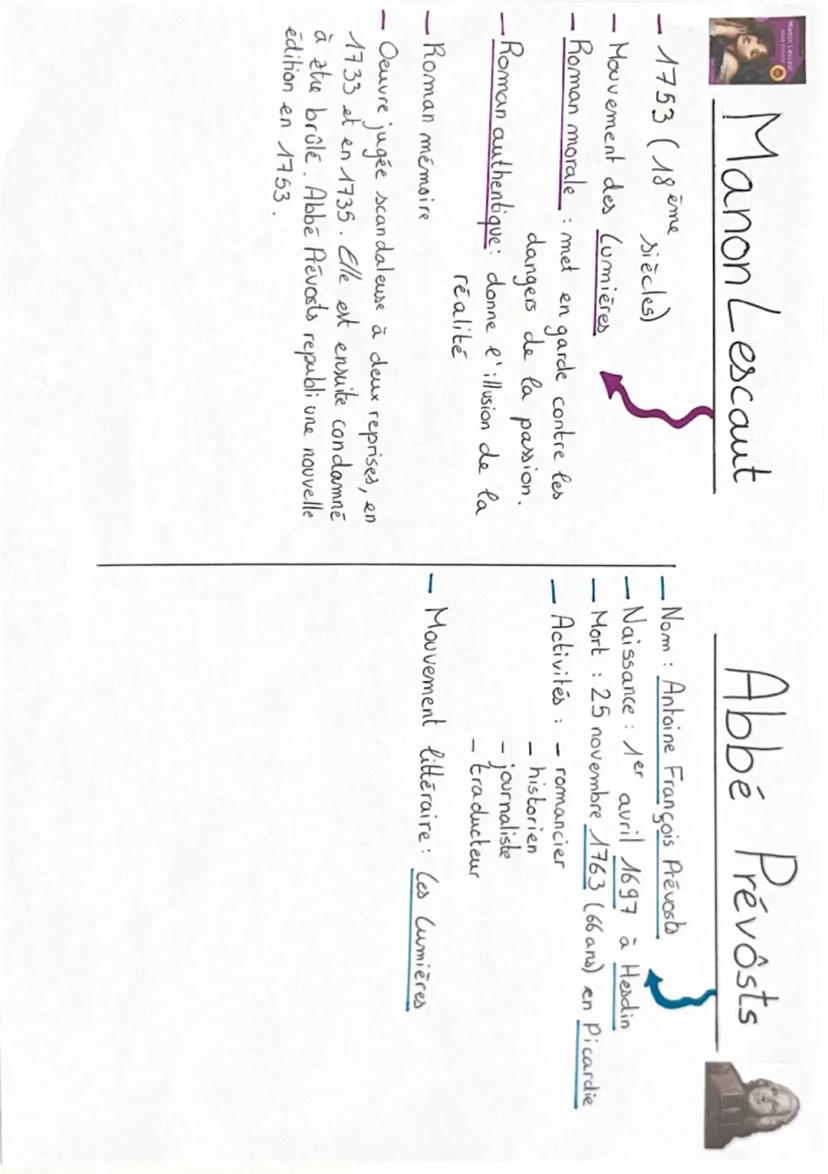 Manon Lescaut
Manon Lescaut
- 1753 (18ème siècles)
- Mouvement des Lumières
- Roman morale : met en garde contre les
dangers de la passion.
- Roman authentique : donne l'illusion de la
réalité
- Roman mémoire
- Oeuvre jugée scandaleuse à deux reprises, en
1733 et en 1735. Elle est ensuite condamné
à être brûlé. Abbé Prévosts republi une nouvelle
édition en 1753.
Abbé Prévôsts
- Nom : Antoine François Prévosts
- Naissance : 1er avril 1697 à Hesdin
- Mort : 25 novembre 1763 (66 ans) en Picardie
- Activités : - romancier
- historien
- journaliste
- traducteur
- Mouvement littéraire : Les Lumières